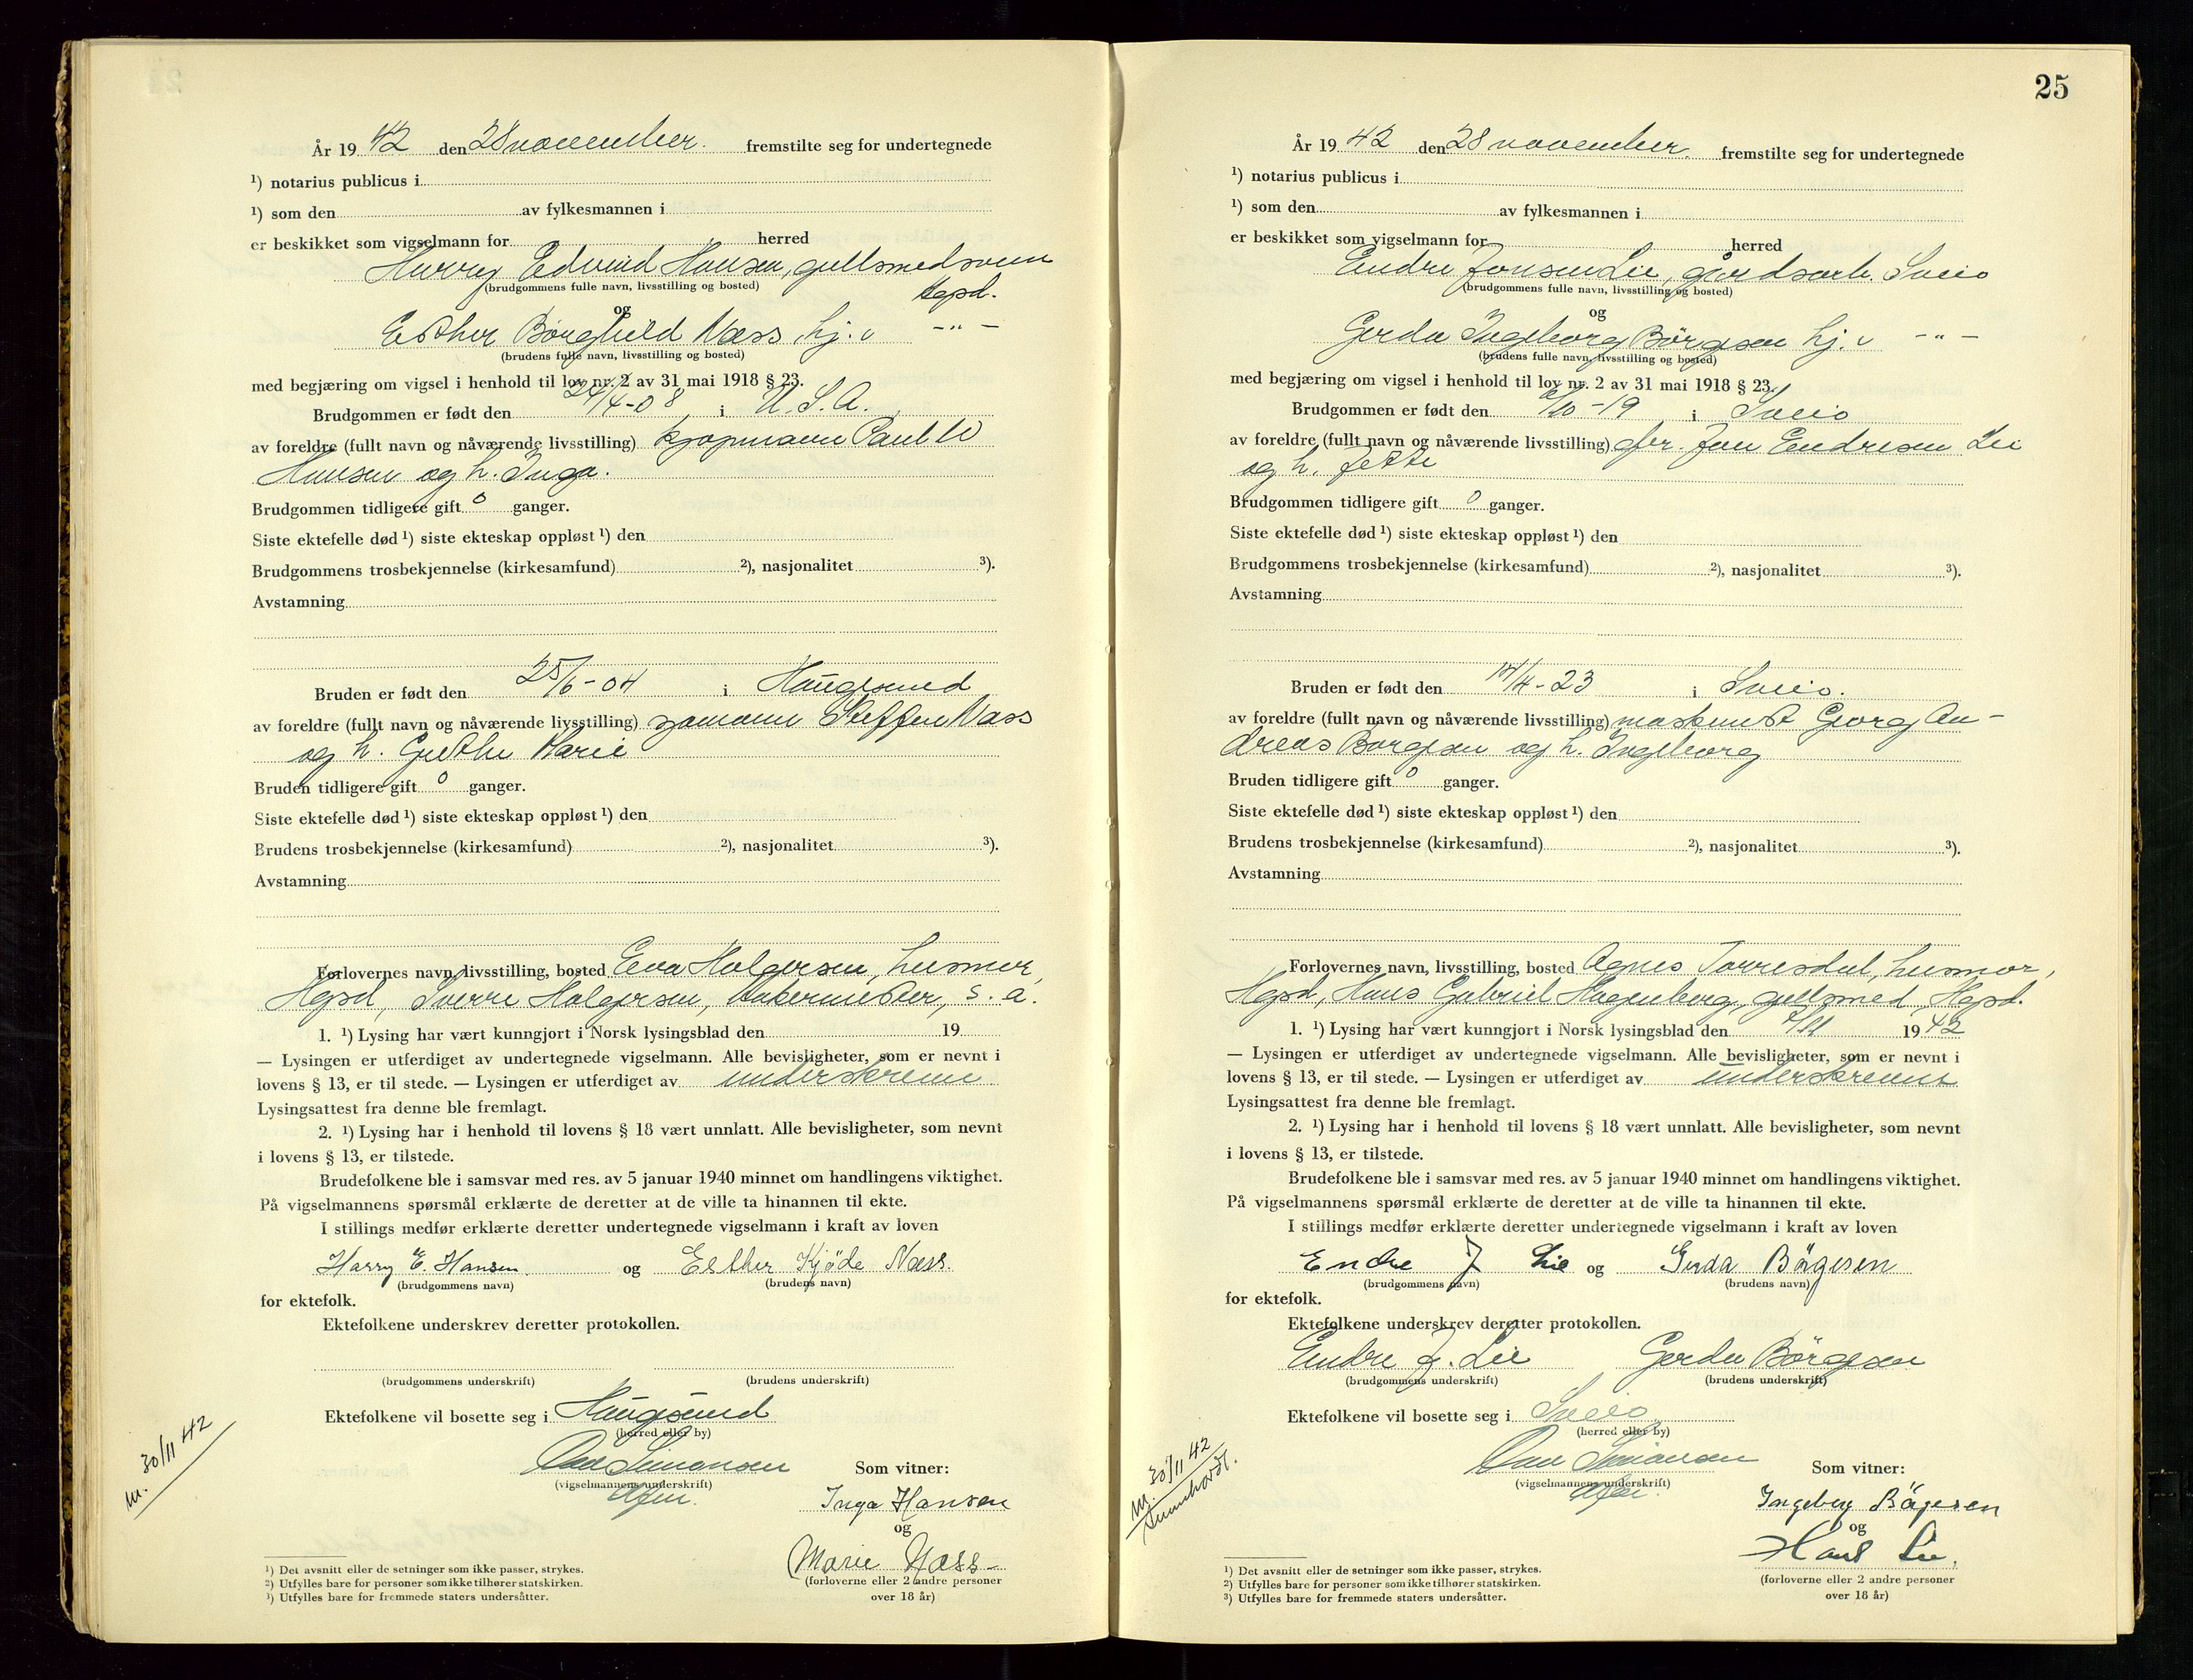 År 19 42 den 28 november. fremstilte seg for undertegnede
¹) notarius publicus i
¹) som den av fylkesmannen i
er beskikket som vigselmann for herred
Harry Edvind Hansen, gullsmedsvenn
(brudgommens fulle navn, livsstilling og bosted)
Hgsd.
og
Esther Borghild Næss, hj. v -"-
(brudens fulle navn, livsstilling og bosted)
med begjæring om vigsel i henhold til lov nr. 2 av 31 mai 1918 § 23.
Brudgommen er født den 24/4-08, i U.S.A.
av foreldre (fullt navn og nåværende livsstilling) kjøpmann Paul W
Hansen og h. Inga.
Brudgommen tidligere gift 0 ganger.
Siste ektefelle død ¹) siste ekteskap oppløst ¹) den
Brudgommens trosbekjennelse (kirkesamfund) ²), nasjonalitet ³).
Avstamning
Bruden er født den 25/6-04 i Haugesund
av foreldre (fullt navn og nåværende livsstilling) sjømann Steffen Næss
og h. Marie
Bruden tidligere gift 0 ganger.
Siste ektefelle død ¹) siste ekteskap oppløst ¹) den
Brudens trosbekjennelse (kirkesamfund) ²), nasjonalitet ³).
Avstamning
Forlovernes navn, livsstilling, bosted Eva Holgersen, husmor,
Hgsd, Sverre Holgersen, bakermester, s. a.
1. ¹) Lysing har vært kunngjort i Norsk lysingsblad den 19
— Lysingen er utferdiget av undertegnede vigselmann. Alle bevisligheter, som er nevnt i
lovens § 13, er til stede. — Lysingen er utferdiget av underskrevne
Lysingsattest fra denne ble fremlagt.
2. ¹) Lysing har i henhold til lovens § 18 vært unnlatt. Alle bevisligheter, som nevnt
i lovens § 13, er tilstede.
Brudefolkene ble i samsvar med res. av 5 januar 1940 minnet om handlingens viktighet.
På vigselmannens spørsmål erklærte de deretter at de ville ta hinannen til ekte.
I stillings medfør erklærte deretter undertegnede vigselmann i kraft av loven
Harry E. Hansen og Esther Kjöde Næss.
(brudgommens navn) (brudens navn)
for ektefolk.
Ektefolkene underskrev deretter protokollen.
(brudgommens underskrift) (brudens underskrift)
Ektefolkene vil bosette seg i Haugesund
(herred eller by)
Simonsen
Som vitner:
(vigselmannens underskrift)
Inga Hansen
og
Marie Næss
(forloverne eller 2 andre personer
over 18 år)
m. 30/11 42
¹) Det avsnitt eller de setninger som ikke passer, strykes.
²) Utfylles bare for personer som ikke tilhører statskirken.
³) Utfylles bare for fremmede staters undersåtter.
25
År 19 42 den 28 november. fremstilte seg for undertegnede
¹) notarius publicus i
¹) som den av fylkesmannen i
er beskikket som vigselmann for herred
Endre Jonsen Lie, gårdsarb. Sveio
(brudgommens fulle navn, livsstilling og bosted)
og
Gerda Ingeborg Börgesen hj. v -"-
(brudens fulle navn, livsstilling og bosted)
med begjæring om vigsel i henhold til lov nr. 2 av 31 mai 1918 § 23.
Brudgommen er født den /10-19 i Sveio
av foreldre (fullt navn og nåværende livsstilling) gbr. Jon Endresen Lie
og h. Jette
Brudgommen tidligere gift 0 ganger.
Siste ektefelle død ¹) siste ekteskap oppløst ¹) den
Brudgommens trosbekjennelse (kirkesamfund) ²), nasjonalitet ³).
Avstamning
Bruden er født den 17/4-23 i Sveio.
av foreldre (fullt navn og nåværende livsstilling) maskinist Georg An-
dreas Børgesen og h. Ingeborg
Bruden tidligere gift 0 ganger.
Siste ektefelle død ¹) siste ekteskap oppløst ¹) den
Brudens trosbekjennelse (kirkesamfund) ²), nasjonalitet ³).
Avstamning
Forlovernes navn, livsstilling, bosted Agnes Torresdal, husmor,
Hgsd, Hans Gabriel Hagenberg, gullsmed, Hgsd.
1. ¹) Lysing har vært kunngjort i Norsk lysingsblad den 7/11 19 42
— Lysingen er utferdiget av undertegnede vigselmann. Alle bevisligheter, som er nevnt i
lovens § 13, er til stede. — Lysingen er utferdiget av underskrevne
Lysingsattest fra denne ble fremlagt.
2. ¹) Lysing har i henhold til lovens § 18 vært unnlatt. Alle bevisligheter, som nevnt
i lovens § 13, er tilstede.
Brudefolkene ble i samsvar med res. av 5 januar 1940 minnet om handlingens viktighet.
På vigselmannens spørsmål erklærte de deretter at de ville ta hinannen til ekte.
I stillings medfør erklærte deretter undertegnede vigselmann i kraft av loven
Endre J Lie og Gerda Börgesen
(brudgommens navn) (brudens navn)
for ektefolk.
Ektefolkene underskrev deretter protokollen.
Endre J. Lie Gerda Börgesen
(brudgommens underskrift) (brudens underskrift)
Ektefolkene vil bosette seg i Sveio
(herred eller by)
Simonsen
Som vitner:
(vigselmannens underskrift)
Ingeborg Börgesen
og
Hans Lie.
(forloverne eller 2 andre personer
over 18 år)
m. 30/11 42
Sunnhordl.
¹) Det avsnitt eller de setninger som ikke passer, strykes.
²) Utfylles bare for personer som ikke tilhører statskirken.
³) Utfylles bare for fremmede staters undersåtter.